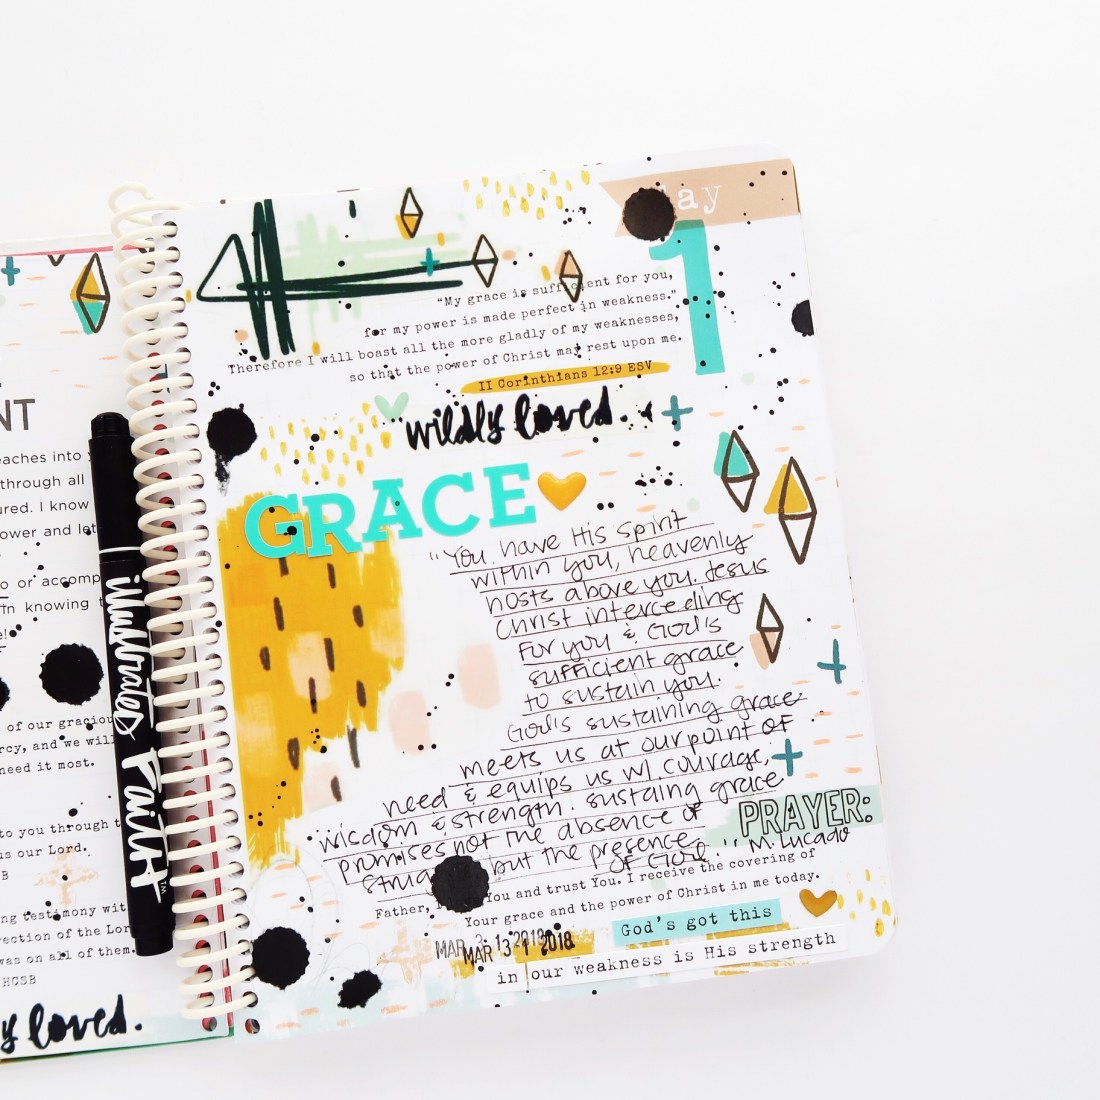 NT
eaches into
through all
ured. I know
ower and let
o or accomp
in knowing
e!
of our graciou
rcy, and we will
need it most.
to you through
us our Lord.
B
ng testimony with
rection of the Lor
was on all of them.
HCSB
y loved.
illustrated FAITH™
ay
1
"My grace is sufficient for you,
for my power is made perfect in weakness."
Therefore I will boast all the more gladly of my weaknesses,
so that the power of Christ may rest upon me.
II Corinthians 12:9 ESV
wildly loved.
GRACE
"You have His spirit
within you, heavenly
hosts above you. Jesus
Christ interceding
for you & God's
sufficient grace
to sustain you.
God's sustaining grace
meets us at our point of
need & equips us w/ courage,
wisdom & strength. sustaing grace
promises not the absence of
but the presence
of God." M. Lucado
PRAYER:
Father, You and trust You. I receive the covering of
Your grace and the power of Christ in me today.
God's got this
MAR 2018
MAR 13 2018
in our weakness is His strength